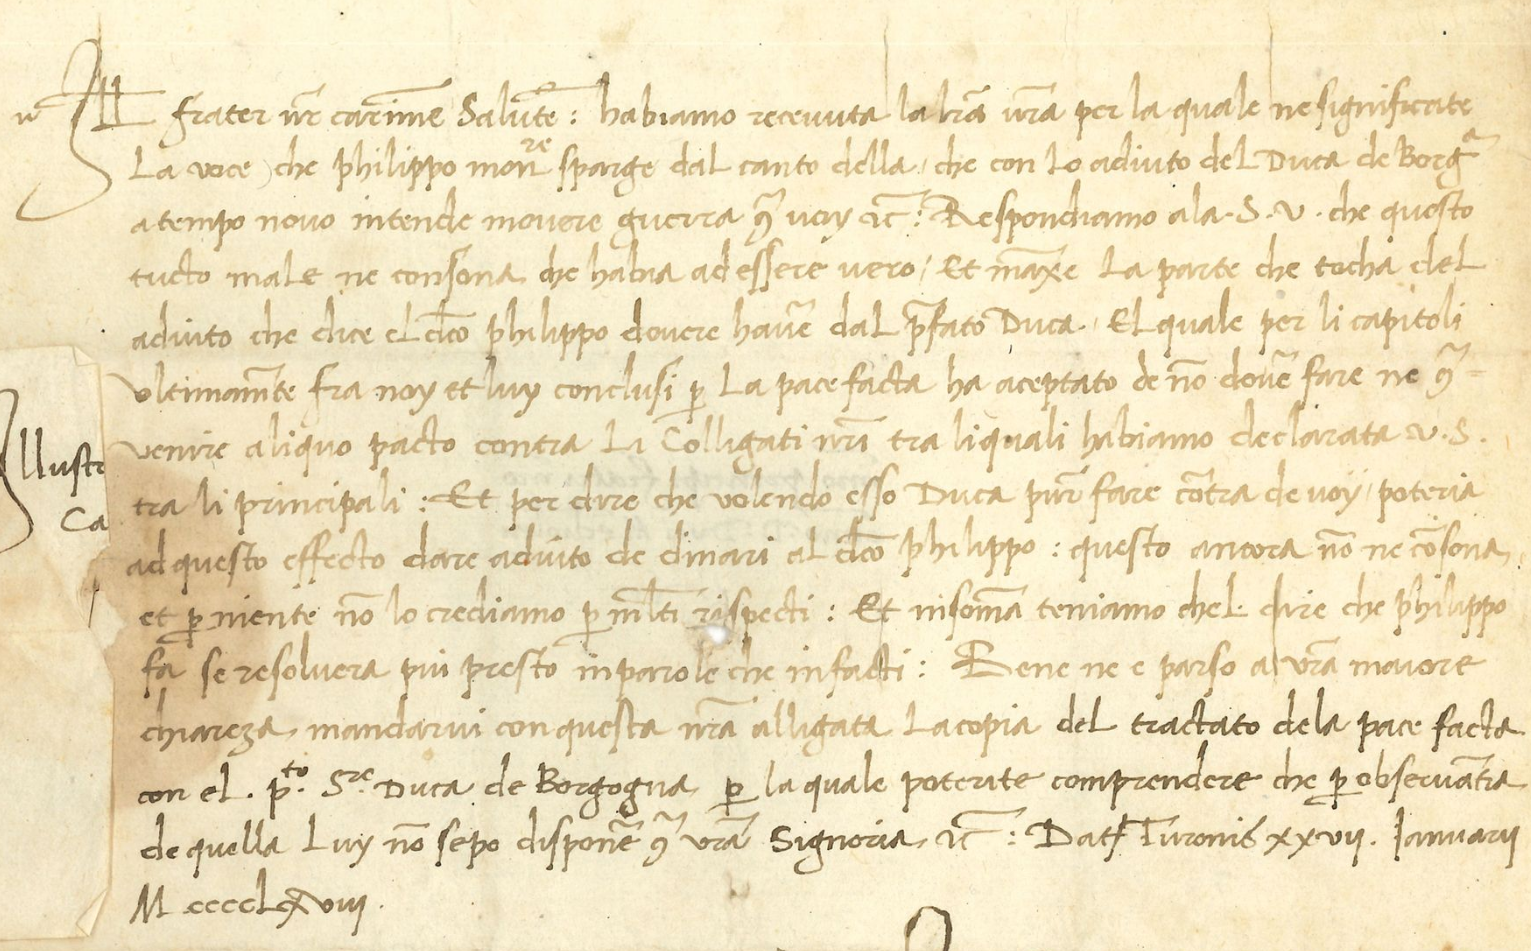 Ill frater nr̄ carīme Salutē: habiamo recevuta la lrā vrā per la quale ne significate
La voce che philippo monre sparge dal canto della, che con lo adiuto del Duca de Borga
a tempo novo intende movere guerra 9̄ voy ⁊c̄: Respondiamo a la .S. V. che questo
tucto male ne consona che habia ad essere vero, Et māxe la parte che tocha del
adiuto che dice el dc̄o philippo dovere havē dal p̄fato Duca. El quale per li capitoli
ultimamt̄e fra noy et luy conclusi ꝑ la pace facta ha aceptato de nō dovē fare ne 9̄=
venire aliquo pacto contra li Colligati nrī tra li quali habiamo declarata V.S.
tra li principali: Et per dire che volendo esso Duca pur̄ fare cōtra de voy, poteria
ad questo effecto dare adiuto de dinari al dc̄o philippo: questo ancora nō ne cōsona,
et ꝑ niente nō lo crediamo ꝑ ml̄ti rispecti: Et in somā teniamo chel dire che philippo
fa se resolvera piu presto in parole che in facti: Bene ne e parso a vrā maiore
chiareza mandarvi con questa nrā alligata la copia del tractato de la pace facta
con el. p.to Sre Duca de Borgogna ꝑ la quale poterite comprendere che ꝑ observātia
de quella Luy nō se po disponē 9̄ vrā Signoria ⁊c̄: Dat Turonis xxvii. Ianuarii
Mcccclxviiii.
Illustr
Ca